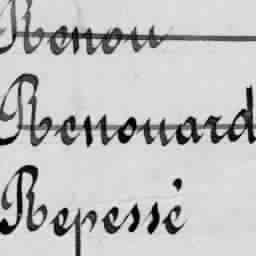 Renou
Renouard
Repessé